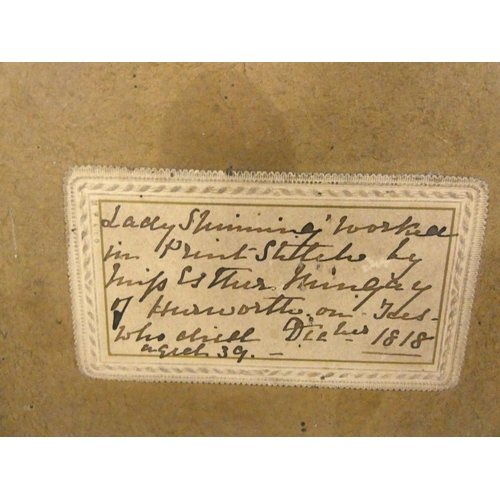 Lady Spinning' worked
in Print Stitch by
Miss Esther Mingay
of Hurworth. on Tees-
who died Dicber 1818
aged 39. –